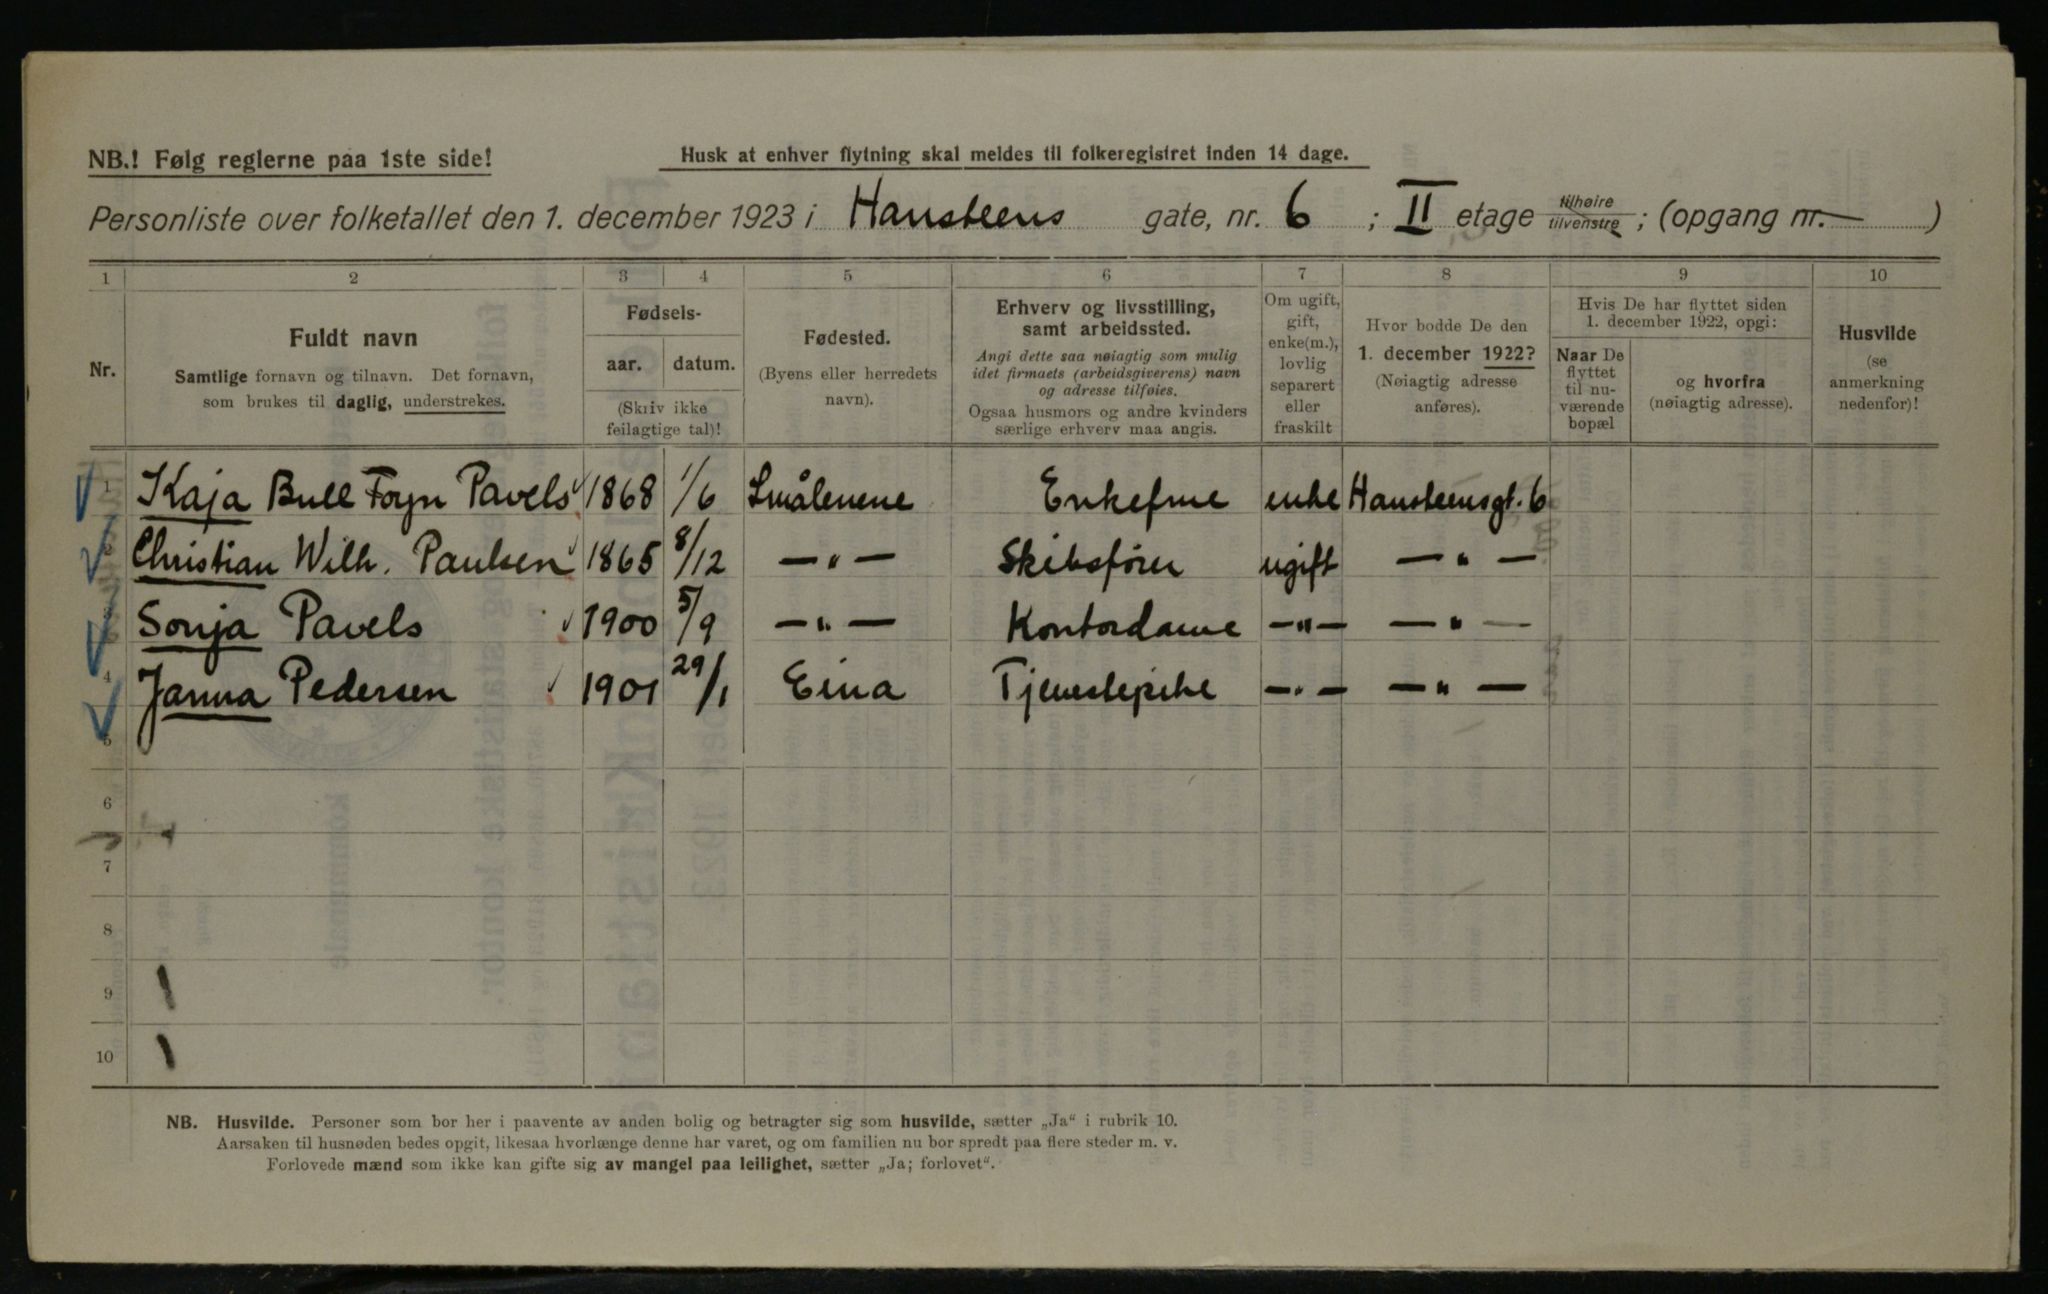 NB.! Følg reglerne paa 1ste side!
Husk at enhver flytning skal meldes til folkeregistret inden 14 dage.
Personliste over folketallet den 1. december 1923 i Hansteens gate, nr. 6 ; II etage tilhøire tilvenstre ; (opgang nr. — )
1 2 3 4 5 6 7 8 9 10
Nr.
Fuldt navn
Samtlige fornavn og tilnavn. Det fornavn,
som brukes til daglig, understrekes.
Fødsels-
aar. datum.
(Skriv ikke
feilagtige tal)!
Fødested.
(Byens eller herredets
navn).
Erhverv og livsstilling,
samt arbeidssted.
Angi dette saa nøiagtig som mulig
idet firmaets (arbeidsgiverens) navn
og adresse tilføies.
Ogsaa husmors og andre kvinders
særlige erhverv maa angis.
Om ugift,
gift,
enke(m.),
lovlig
separert
eller
fraskilt
Hvor bodde De den
1. december 1922?
(Nøiagtig adresse
anføres).
Hvis De har flyttet siden
1. december 1922, opgi:
Naar De
flyttet
til nu-
værende
bopæl
og hvorfra
(nøiagtig adresse).
Husvilde
(se
anmerkning
nedenfor)!
1 Kaja Bull Foyn Pavels 1868 1/6 Smålenene Enkefrue enke Hansteensgt. 6
2 Christian Wilh. Paulsen 1865 8/12 — " — Skibsfører ugift — " —
3 Sonja Pavels 1900 5/9 — " — Kontordame — " — — " —
4 Janna Pedersen 1901 29/1 Eina Tjenestepike — " — — " —
5
6
7
8
9
10
NB. Husvilde. Personer som bor her i paavente av anden bolig og betragter sig som husvilde, sætter „Ja“ i rubrik 10.
Aarsaken til husnøden bedes opgit, likesaa hvorlænge denne har varet, og om familien nu bor spredt paa flere steder m. v.
Forlovede mænd som ikke kan gifte sig av mangel paa leilighet, sætter „Ja; forlovet“.